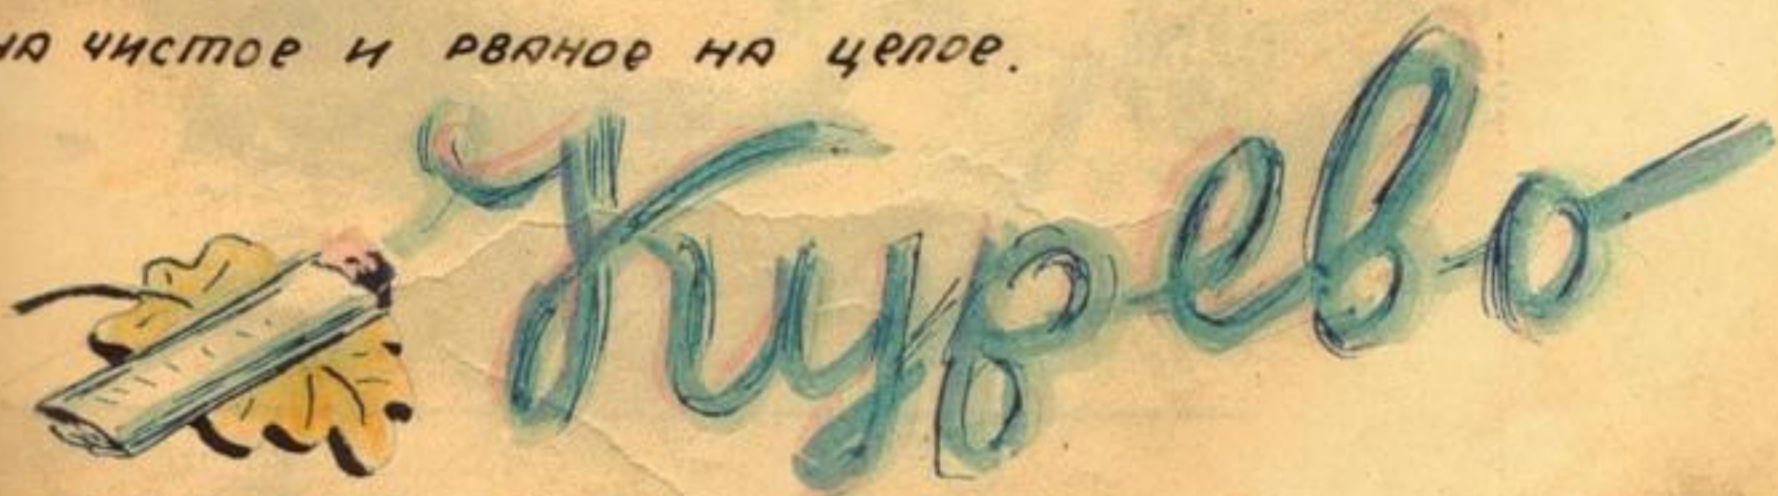 на чистое и рваное на целое.
Курево